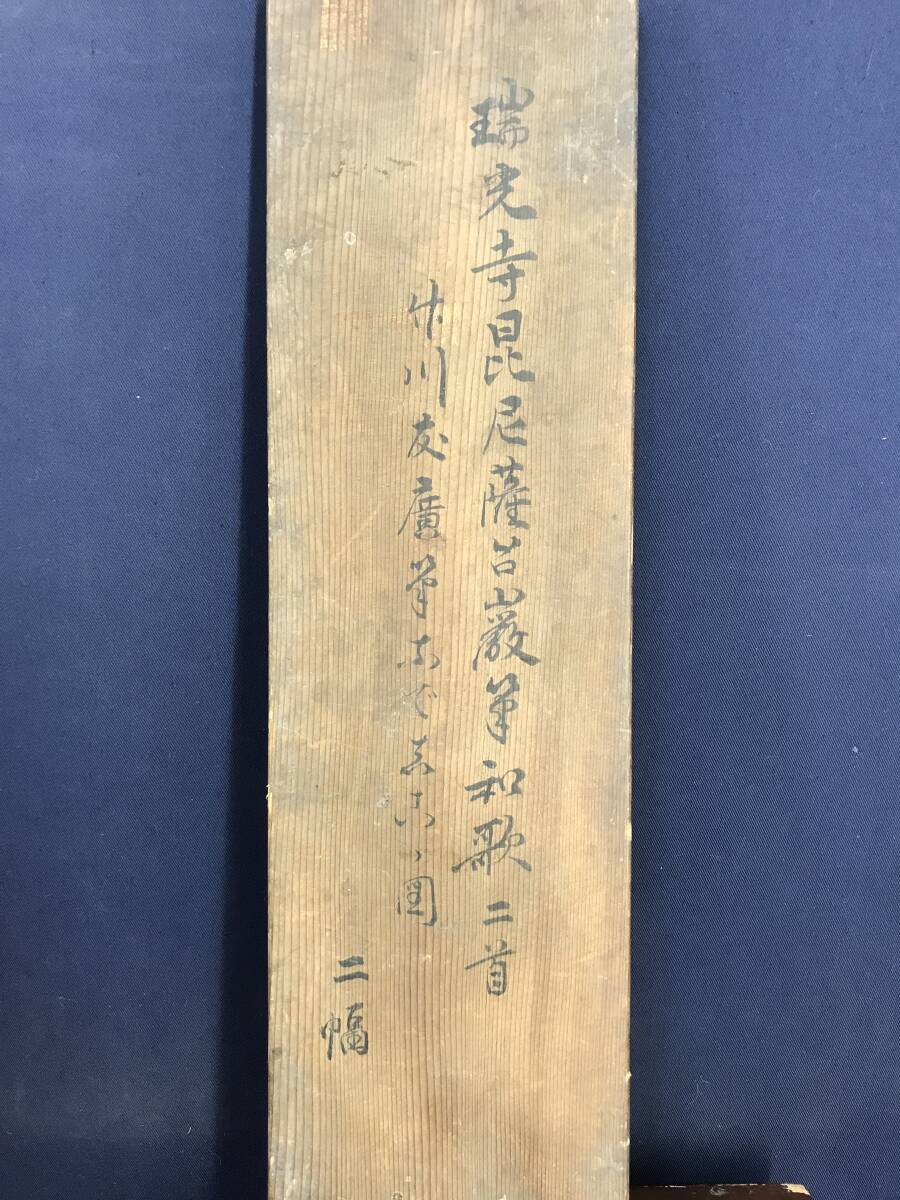 瑞光寺昆尼薩台巌筆和歌二首
竹川友廣筆なでしこ図
二幅